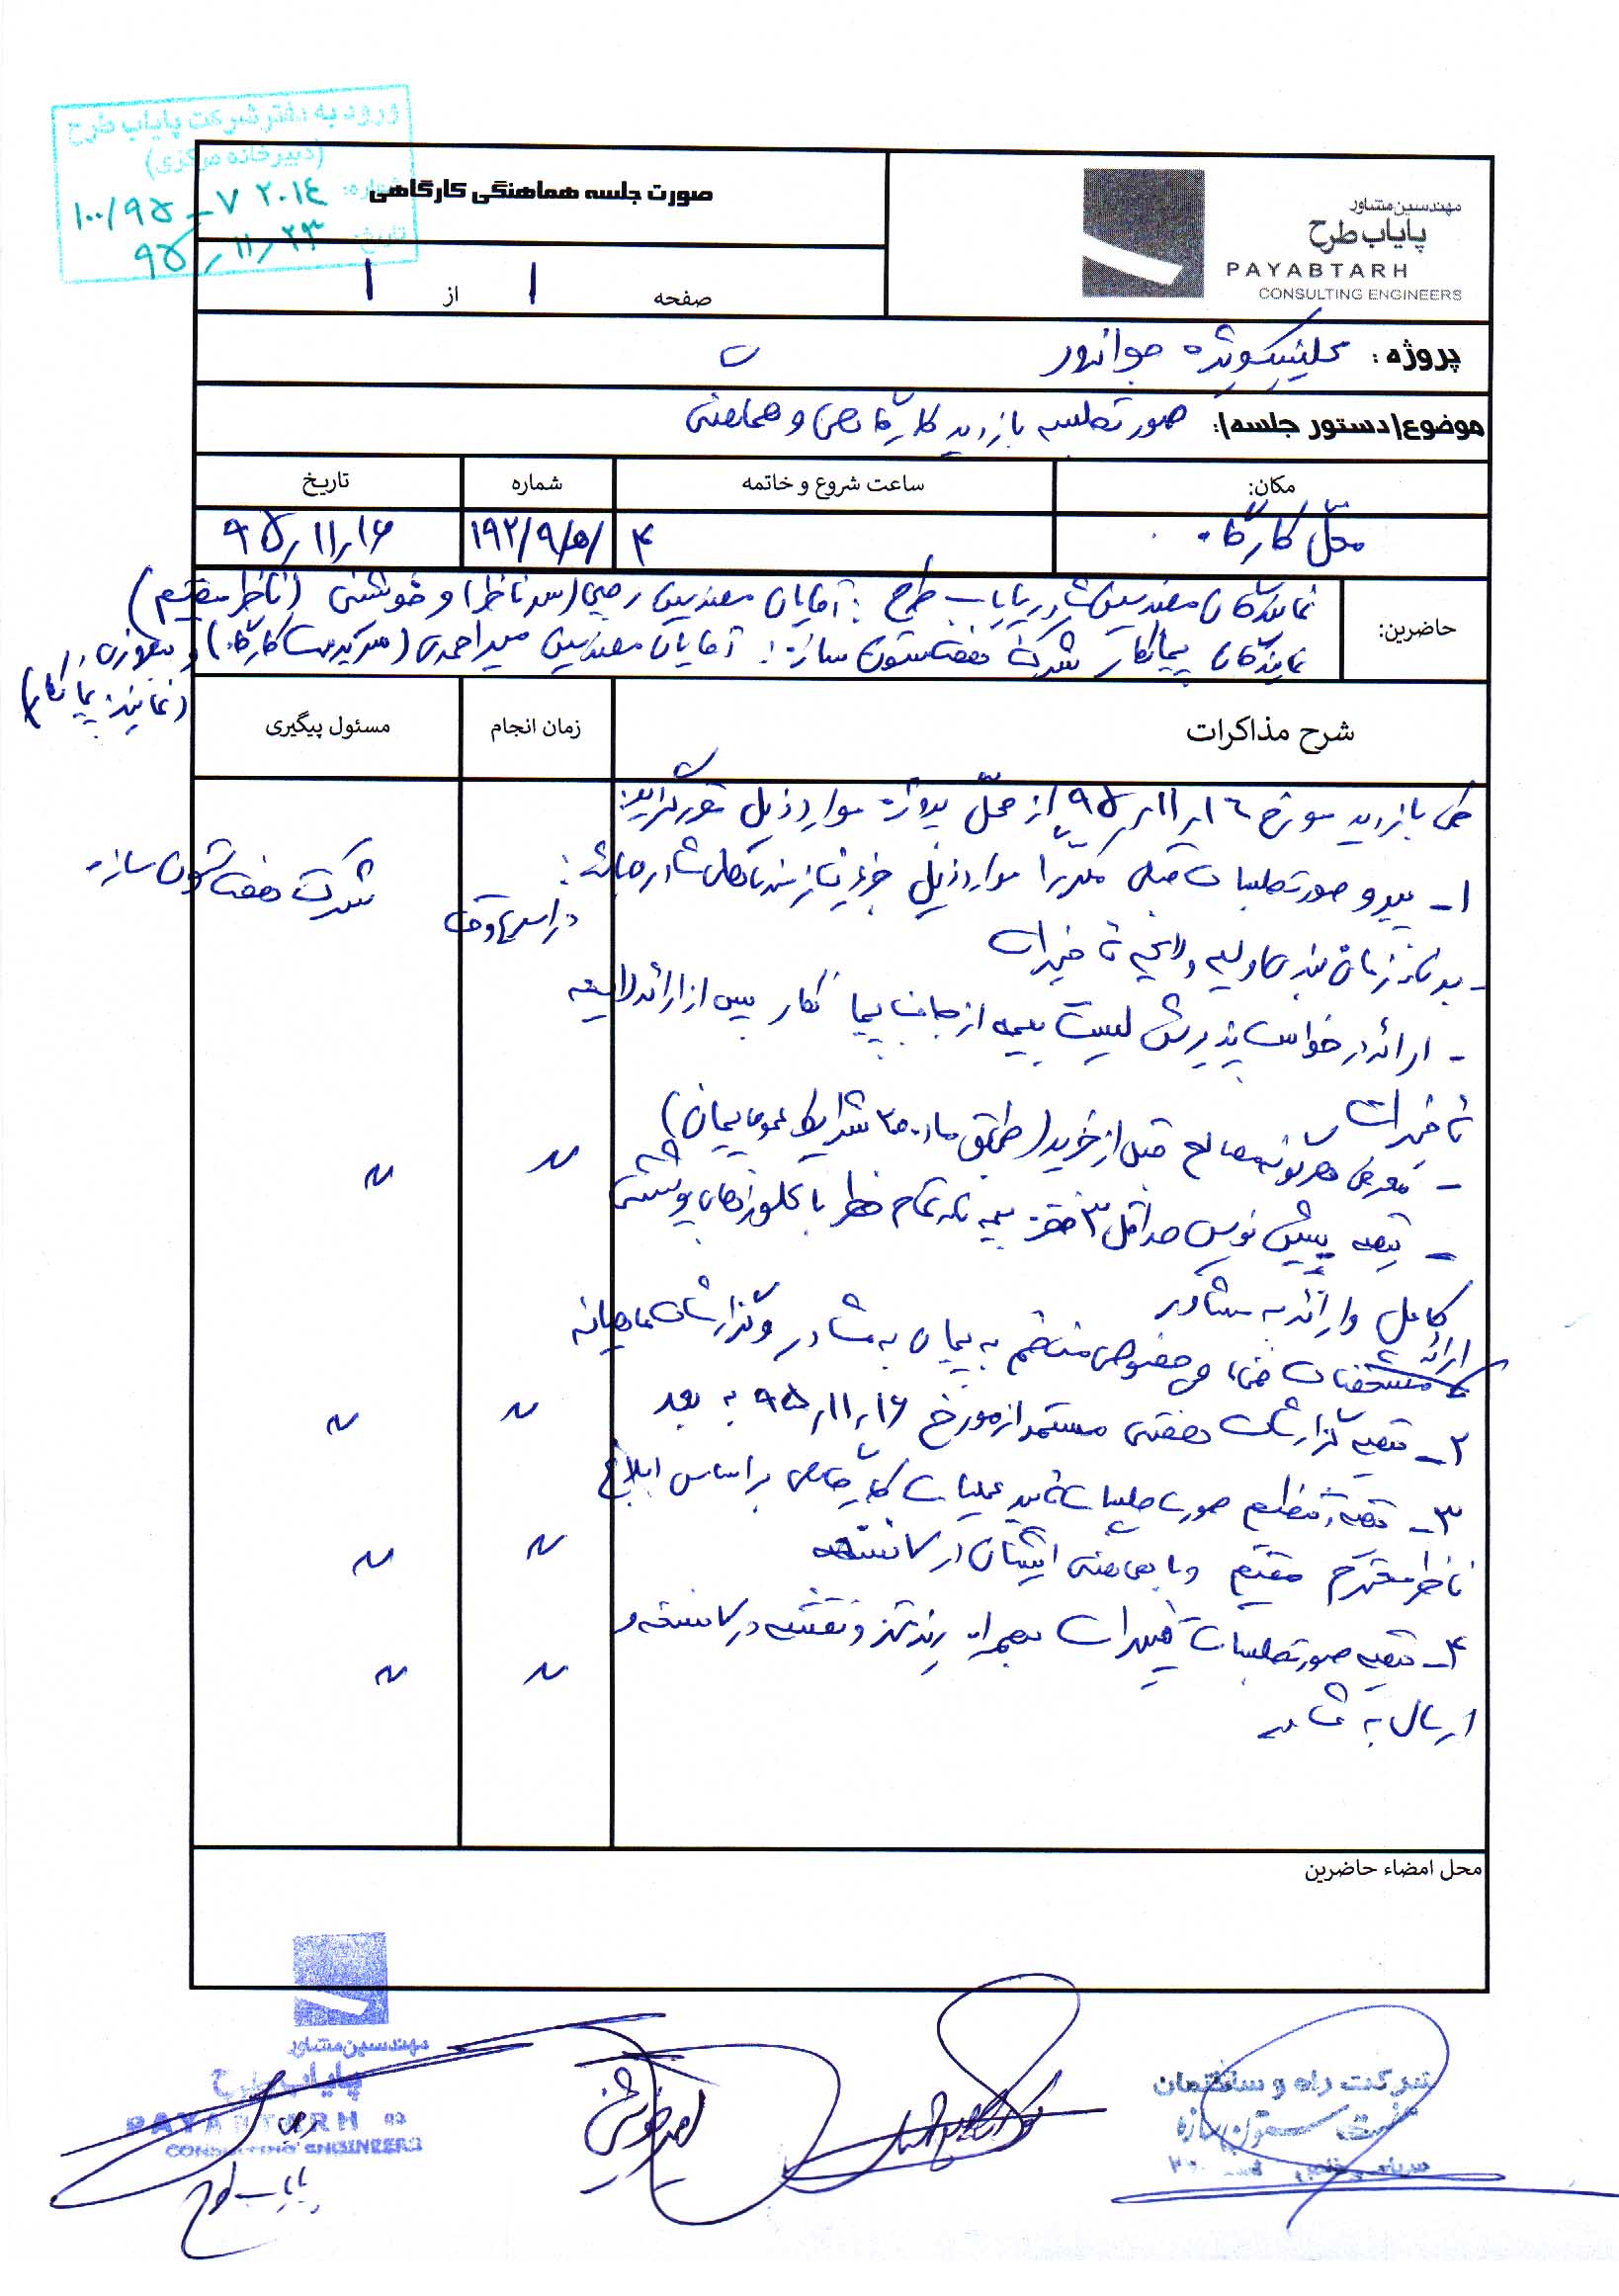 ورود به دفتر شرکت پایاب طرح
(دبیرخانه مرکزی)
شماره: ۱۰۰/۹۵-۷۲۰۱۴
تاریخ: ۹۵/۱۱/۲۳
صورت جلسه هماهنگی کارگاهی
صفحه ۱ از ۱
مهندسین مشاور
پایاب طرح
PAYABTARH
CONSULTING ENGINEERS
پروژه: کلینیک ویژه جوانرود
موضوع(دستور جلسه): صورتجلسه بازدید کارگاهی و هماهنگی
مکان: ساعت شروع و خاتمه شماره تاریخ
محل کارگاه ۴ ۱۹۲/۹/۵/ ۹۵/۱۱/۱۶
حاضرین: نمایندگان مهندسین مشاور پایاب طرح: آقایان مهندسین رجبی (سرناظر) و خوشنشین (ناظر مقیم)
نمایندگان پیمانکار شرکت هفت ستون سازه: آقایان مهندسین میراحمدی (سرپرست کارگاه) و
(نماینده پیمانکار)
شرح مذاکرات زمان انجام مسئول پیگیری
طی بازدید مورخ ۹۵/۱۱/۱۶ از محل پروژه موارد ذیل مقرر گردید:
۱- پیرو صورتجلسات قبلی مکررا موارد ذیل جزء نیازمندیهای مشاور میباشد: در اسرع وقت شرکت هفت ستون سازه
- برنامه زمان بندی اولیه و لایحه تاخیرات
- ارائه درخواست پذیرش لیست بیمه از جانب پیمانکار پس از ارائه لایحه
تاخیرات
- معرفی هرگونه مصالح قبل از خرید (طبق ماده ۲۰ شرایط عمومی پیمان) " "
- تهیه پیش نویس حداقل ۳ فقره بیمه نامه تمام خطر با کلوزهای پوششی
کامل و ارائه به مشاور
ارائه مشخصات فنی خصوصی منضم به پیمان به مشاور و گزارشات ماهیانه
۲- تهیه گزارشات هفتگی مستمر از مورخ ۹۵/۱۱/۱۶ به بعد " "
۳- تهیه و تنظیم صورت جلسات تایید عملیات کارگاهی براساس ابلاغ
ناظر محترم مقیم و با هماهنگی ایشان در ۵ نسخه " "
۴- تهیه صورتجلسات تغییرات بهمراه ریز متره و نقشه در ۵ نسخه و
ارسال به مشاور " "
محل امضاء حاضرین
مهندسین مشاور
پایاب طرح
PAYABTARH
CONSULTING ENGINEERS
رجبی
پایاب طرح
شرکت راه و ساختمان
هفت ستون سازه